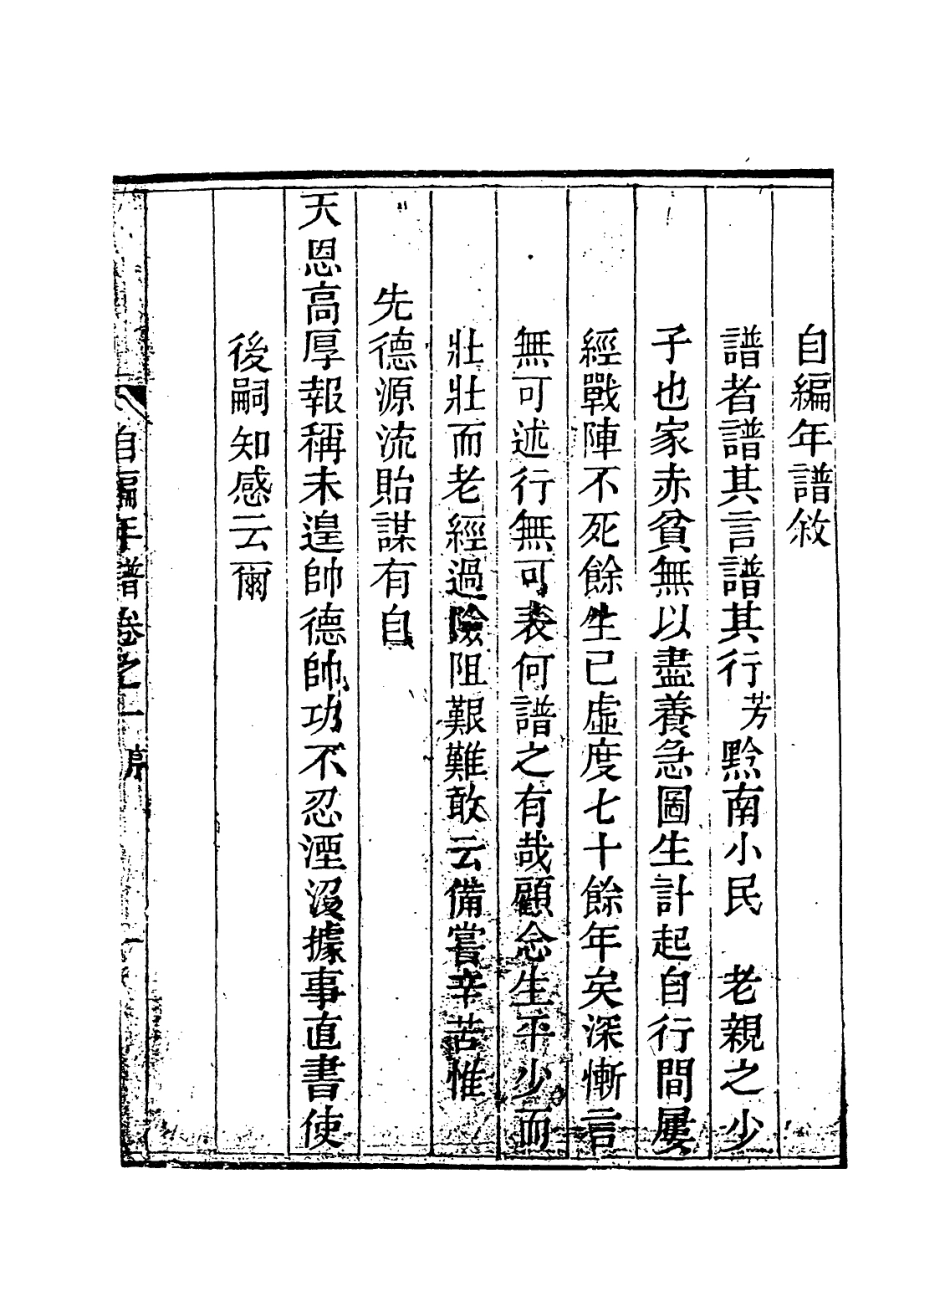 自編年譜敘
譜者譜其言譜其行芳黔南小民　老親之少
子也家赤貧無以盡養急圖生計起自行間屢
經戰陣不死餘生已虛度七十餘年矣深慚言
無可述行無可表何譜之有哉顧念生平少而
壯壯而老經過險阻艱難敢云備嘗辛苦惟
先德源流貽謀有自
天恩高厚報稱未遑帥德帥功不忍湮沒據事直書使
後嗣知感云爾
自編年譜卷之一序　一